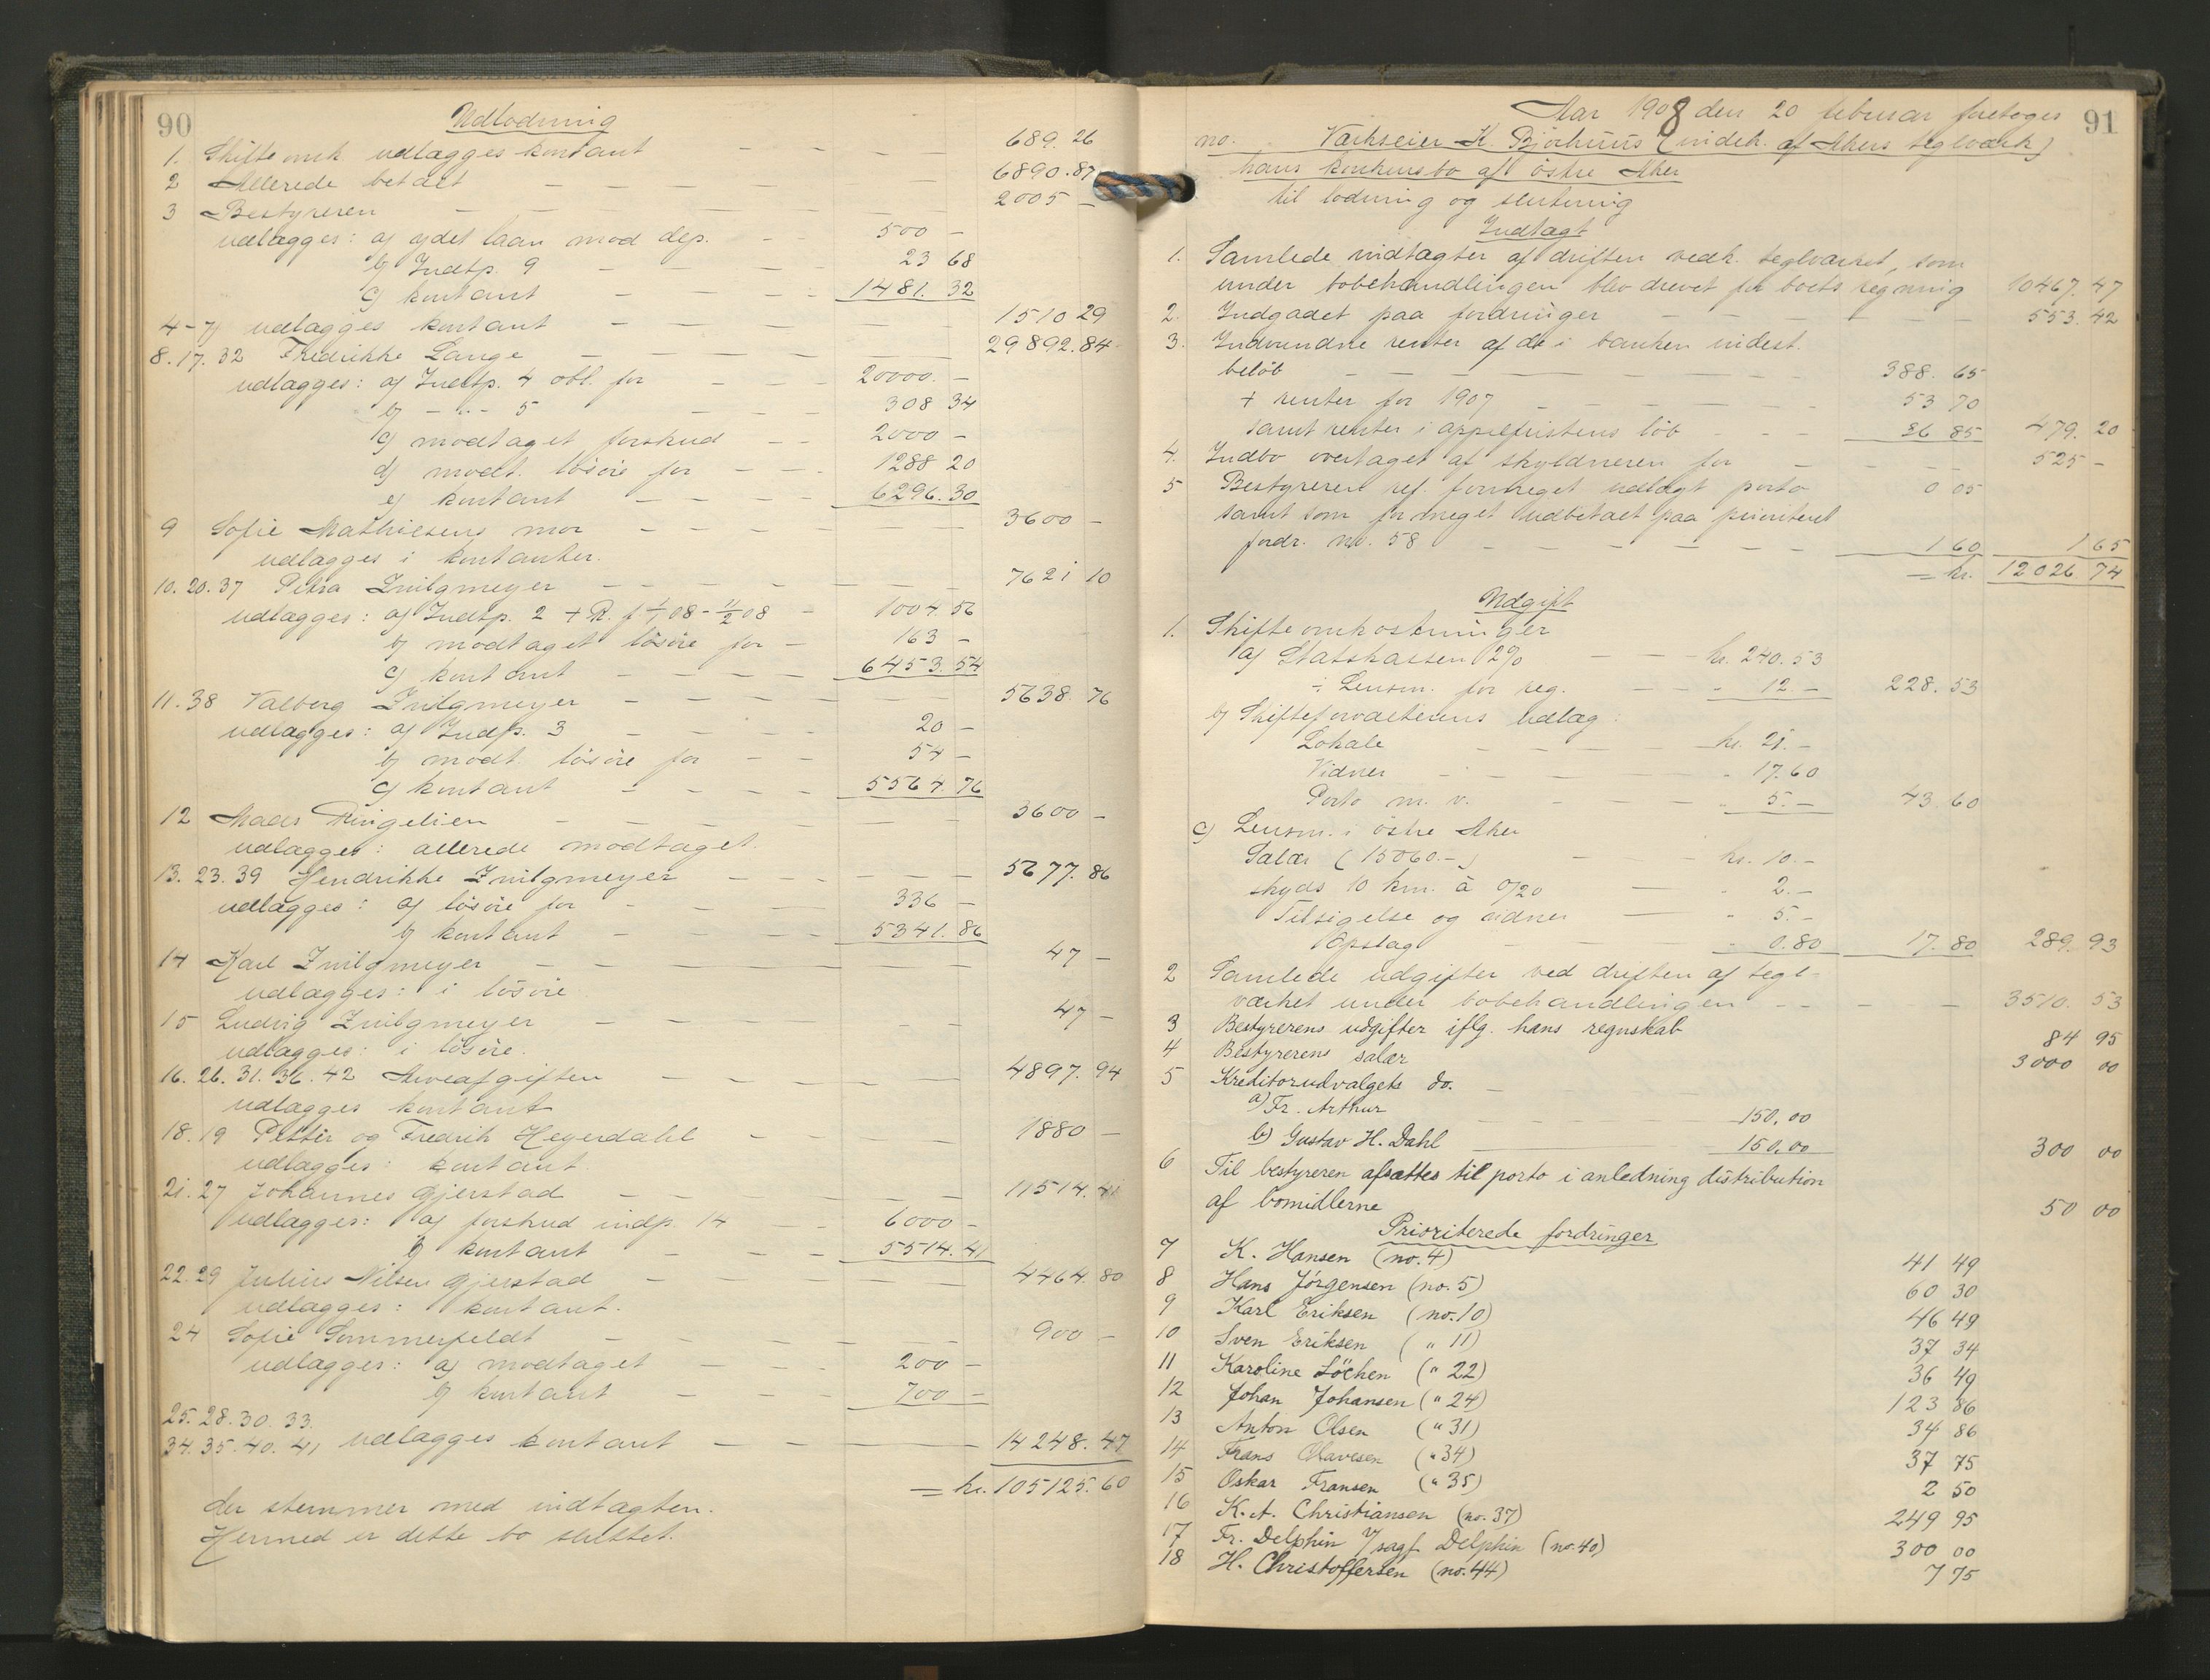 90
Udlodning
1. Skifteomk. udlægges kontant 689.26
2 Allerede betalt 6890.87
3 Bestyreren 2005 –
udlægges: a) ydet laan mod dep. 500 –
b) Indtp. 9 23 68
c) kontant 1481.32
4-7) udlægges kontant 1510 29
8.17.32 Fredrikke Lange 29892.84
udlægges: a) Indtp. 4 obl. for 20000.–
b) – " – 5 308 34
c) modtaget forskud 2000 –
d) modt. løsøre for 1288 20
e) kontant 6296.30
9 Sofie Mathisens mor 3600 –
udlægges i kontanter.
10.20.37 Petra Zwilgmeyer 7621 10
udlægges: a) Indtp. 2 + R. f 1/1 08 - 11/2 08 1004.56
b) modtaget løsøre for 163 –
c) kontant 6453.54
11.38 Valborg Zwilgmeyer 5638.76
udlægges: a) Indtp. 3 20 –
b) modt. løsøre for 54 –
c) kontant 5564.76
12 Mads Ringelien 3600 –
udlægges: allerede modtaget.
13.23.39 Hendrikke Zwilgmeyer 5677.86
udlægges: a) løsøre for 336 –
b) kontant 5341.86
14 Karl Zwilgmeyer 47 –
udlægges: i løsøre
15 Ludvig Zwilgmeyer 47 –
udlægges: i løsøre.
16.26.31.36.42 Arveafgiften 4897.94
udlægges kontant
18.19 Petter og Fredrik Heyerdahl 1880 –
udlægges: kontant.
21.27 Johannes Gjerstad 11514.41
udlægges: a) forskud indp. 14 6000 –
b) kontant 5514.41
22.29 Julius Nilsen Gjerstad 4464.80
udlægges: kontant.
24 Sofie Sommerfeldt 900 –
udlægges: a) modtaget 200 –
b) kontant 700 –
25.28.30.33.
34.35.40.41 udlægges kontant 14248.47
= kr. 105125.60
der stemmer med indtægten.
Hermed er dette bo sluttet.
91
Aar 1908 den 20 februar foretoges
no. Værkseier K. Bjørhuus (indeh. af Akers teglværk)
hans konkursbo af østre Aker
til lodning og slutning
Indtægt
1. Samlede indtægter af driften vedk. teglværket, som
under bobehandlingen blev drevet for boets regning 10467.47
2. Indgaaet paa fordringer 553.42
3. Indvundne renter af de i banken indest.
beløb 388.65
+ renter for 1907 53 70
samt renter i appelfristens løb 36 85 479.20
4. Indbo overtaget af skyldneren for 525 –
5 Bestyreren ref. formeget udlagt porto 0 05
samt som for meget udbetalt paa prioriteret
fordr. no. 58 1 60 1 65
= kr. 12026 74
Udgift
1. Skifteomkostninger
a) Statskassen 2% kr. 240.53
÷ Lensm. for reg. " 12.– 228.53
b) Skifteforvalterens udlæg:
Lokale kr. 21.–
Vidner " 17.60
Porto m. v. " 5.– 43.60
c) Lensm. i østre Aker
Salær (15060.–) kr. 10.–
skyds 10 km. à 0/20 " 2.–
Tilsigelse og vidner " 5.–
Opslag " 0.80 17.80 289.93
2 Samlede udgifter ved driften af tegl-
værket under bobehandlingen 3510.53
3 Bestyrerens udgifter iflg. hans regnskab 84 95
4 Bestyrerens salær 3000 00
5 Kreditorudvalgets do.
a) Fr. Arthur 150,00
b) Gustav H. Dahl 150,00 300 00
6 Til bestyreren afsættes til porto i anledning distribution
af bomidlerne 50 00
Prioriterede fordringer
7 K. Hansen (no. 4) 41 49
8 Hans Jørgensen (no. 5) 60 30
9 Karl Eriksen (no. 10) 46 49
10 Sven Eriksen ( " 11) 37 34
11 Karoline Löchen ( " 22) 36 49
12 Johan Johansen ( " 24) 123 86
13 Anton Olsen ( " 31) 34 86
14 Frans Olavesen ( " 34) 37 75
15 Oskar Fransen ( " 35) 2 50
16 K. A. Christiansen (no. 37) 249 95
17 Fr. Delphin v/ sagf. Delphin (no. 40) 300 00
18 H. Christoffersen (no. 44) 7 75